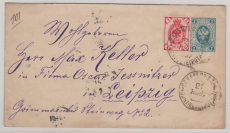 101
Wohlgeboren
Herrn Max Keller
in Firma Oscar Jessniker
in Leipzig
Grimmaischer Steinweg No 2.